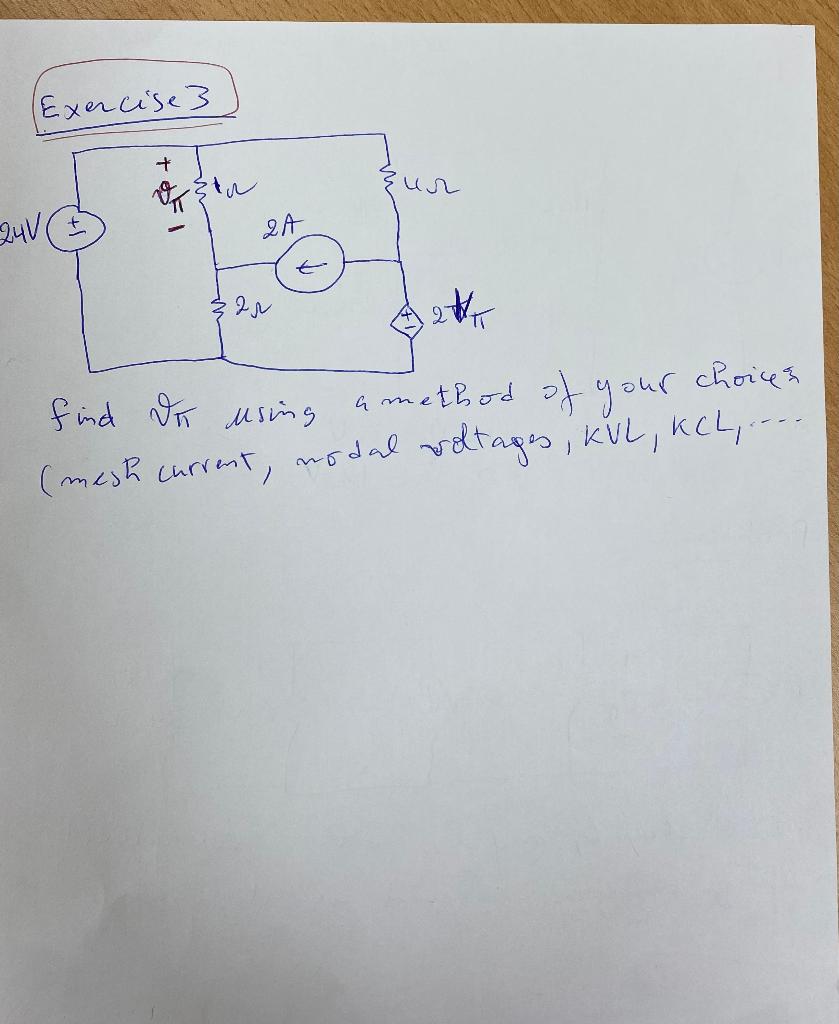 Exercise 3
+
24V ± vπ 1Ω 4Ω
-
2A
←
2Ω ± 2Vπ
find vπ using a method of your choices
(mesh current, nodal voltages, KVL, KCL, ....